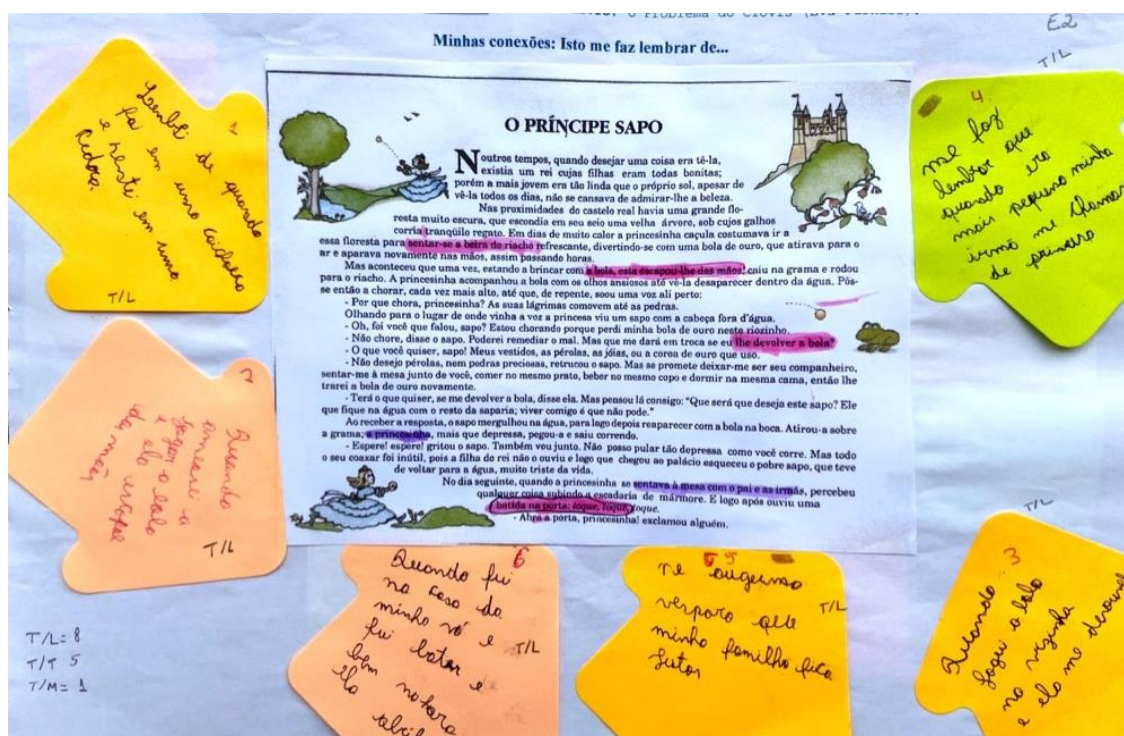 Minhas conexões: Isto me faz lembrar de...
E2
T/L
O PRÍNCIPE SAPO
Noutros tempos, quando desejar uma coisa era tê-la,
existia um rei cujas filhas eram todas bonitas;
porém a mais jovem era tão linda que o próprio sol, apesar de
vê-la todos os dias, não se cansava de admirar-lhe a beleza.
Nas proximidades do castelo real havia uma grande flo-
resta muito escura, que escondia em seu seio uma velha árvore, sob cujos galhos
corria tranqüilo regato. Em dias de muito calor a princesinha caçula costumava ir a
essa floresta para sentar-se a beira do riacho refrescante, divertindo-se com uma bola de ouro, que atirava para o
ar e aparava novamente nas mãos, assim passando horas.
Mas aconteceu que uma vez, estando a brincar com a bola, esta escapou-lhe das mãos, caiu na grama e rodou
para o riacho. A princesinha acompanhou a bola com os olhos ansiosos até vê-la desaparecer dentro da água. Pôs-
se então a chorar, cada vez mais alto, até que, de repente, soou uma voz ali perto:
- Por que chora, princesinha? As suas lágrimas comovem até as pedras.
Olhando para o lugar de onde vinha a voz a princesa viu um sapo com a cabeça fora d'água.
- Oh, foi você que falou, sapo? Estou chorando porque perdi minha bola de ouro neste riozinho.
- Não chore, disse o sapo. Poderei remediar o mal. Mas que me dará em troca se eu lhe devolver a bola?
- O que você quiser, sapo! Meus vestidos, as pérolas, as jóias, ou a coroa de ouro que uso.
- Não desejo pérolas, nem pedras preciosas, retrucou o sapo. Mas se promete deixar-me ser seu companheiro,
sentar-me à mesa junto de você, comer no mesmo prato, beber no mesmo copo e dormir na mesma cama, então lhe
trarei a bola de ouro novamente.
- Terá o que quiser, se me devolver a bola, disse ela. Mas pensou lá consigo: "Que será que deseja este sapo? Ele
que fique na água com o resto da saparia; viver comigo é que não pode."
Ao receber a resposta, o sapo mergulhou na água, para logo depois reaparecer com a bola na boca. Atirou-a sobre
a grama; a princesinha, mais que depressa, pegou-a e saiu correndo.
- Espere! espere! gritou o sapo. Também vou junto. Não posso pular tão depressa como você corre. Mas todo
o seu coaxar foi inútil, pois a filha do rei não o ouviu e logo que chegou ao palácio esqueceu o pobre sapo, que teve
de voltar para a água, muito triste da vida.
No dia seguinte, quando a princesinha se sentava à mesa com o pai e as irmãs, percebeu
qualquer coisa subindo a escadaria de mármore. E logo após ouviu uma
batida na porta: toque, toque, toque.
- Abra a porta, princesinha! exclamou alguém.
Lembi de quando
fá em uma
e nentei em uma
T/L
4
me faz
lembor que
quando ero
mais pequeno minha
irmõ me
de
Quando
a
T/L
6
Quando fui
na caso da
minho vó e
fui bater e
T/L
5
verparo que
minho familho fica
T/L
T/L
3
Quando
joguei o bola
na
e elo me
T/L= 8
T/T 5
T/M= 1